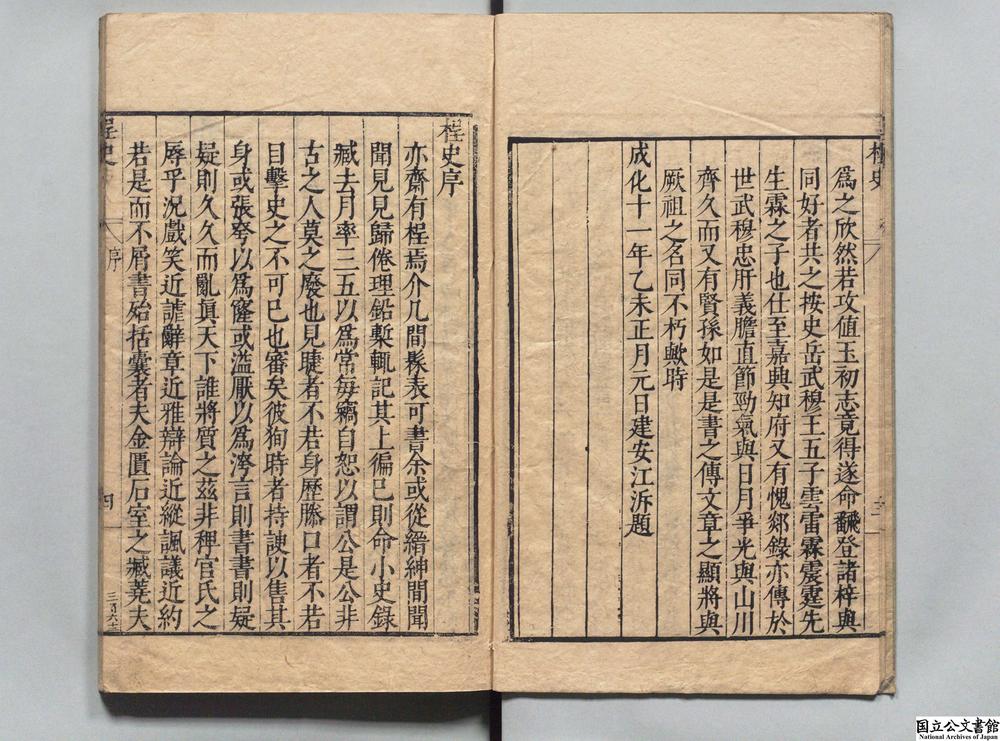 爲之欣然若攻值玉初志竟得遂命飜登諸梓與
同好者共之按史岳武穆王五子雲雷霖震霆先
生霖之子也仕至嘉興知府又有愧郯錄亦傳於
世武穆忠肝義膽直節勁氣與日月爭光與山川
齊久而又有賢孫如是是書之傳文章之顯將與
厥祖之名同不朽歟時
成化十一年乙未正月元日建安江泝題
桯史序
亦齋有桯焉介几間髹表可書余或從縉紳間聞
聞見見歸倦理鉛槧輒記其上徧已則命小史錄
臧去月率三五以爲常每竊自恕以謂公是公非
古之人莫之廢也見睫者不若身歷滕口者不若
目擊史之不可已也審矣彼狥時者持諛以售其
身或張夸以爲窿或溢厭以爲洿言則書書則疑
疑則久久而亂眞天下誰將質之茲非稗官氏之
辱乎況戲笑近謔辭章近雅辯論近縱諷議近約
若是而不屑書殆括囊者夫金匱石室之臧蕘夫
桯史
三
桯史
序
四
国立公文書館
National Archives of Japan